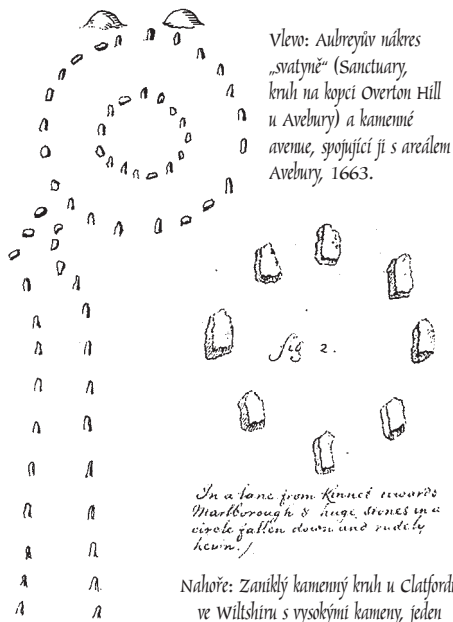 Vlevo: Aubreyův nákres
„svatyně“ (Sanctuary,
kruh na kopci Overton Hill
u Avebury) a kamenné
avenue, spojující ji s areálem
Avebury, 1663.
fig 2.
In a lane from Kinnet towards
Marlborough 8 huge stones in a
circle fallen down and rudely
hewn.
Nahoře: Zaniklý kamenný kruh u Clatfordu
ve Wiltshiru s vysokými kameny, jeden